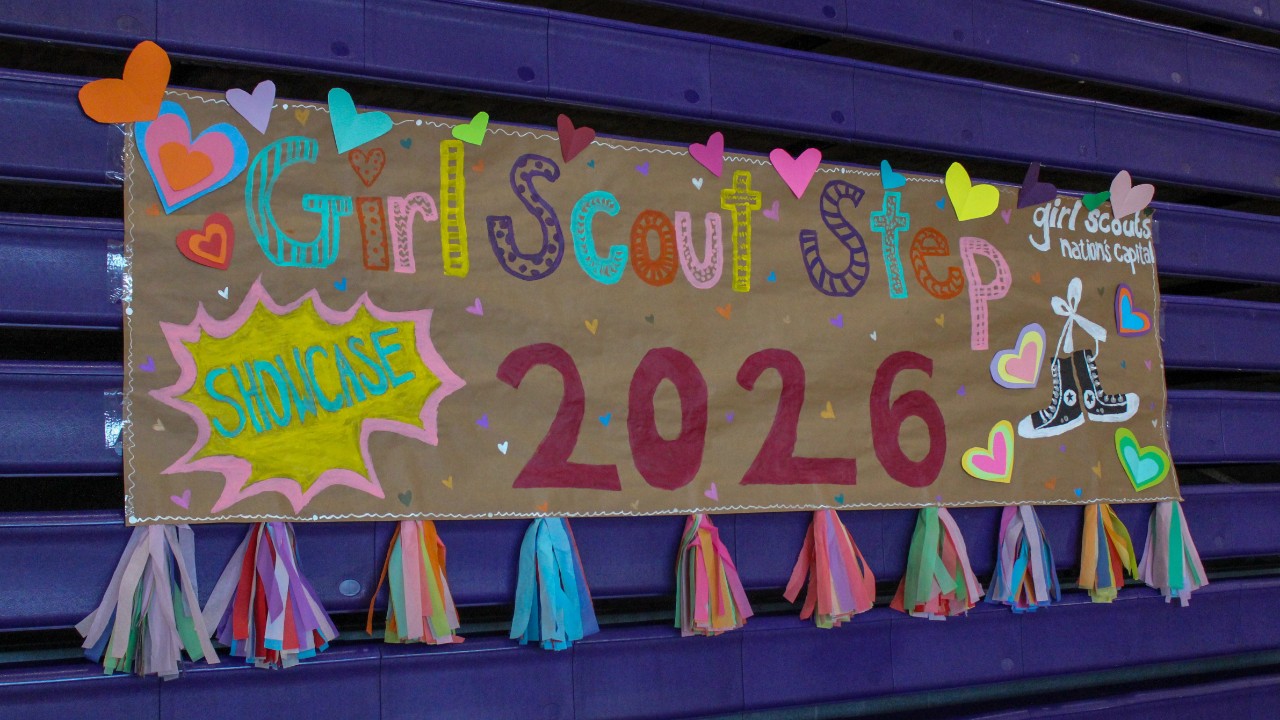 Girl Scout Step
girl scouts
nation's capital
SHOWCASE
2026